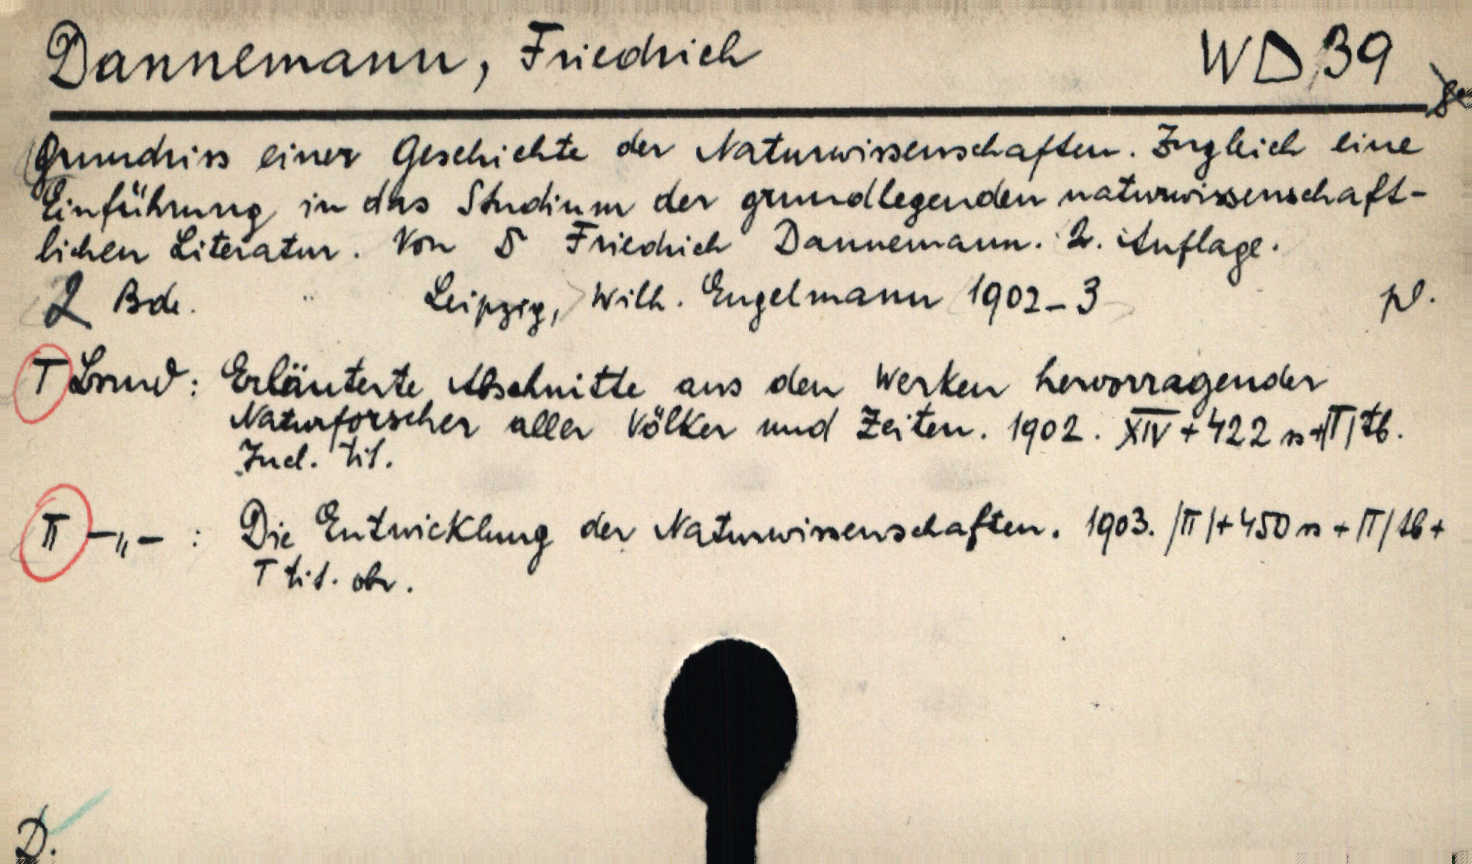 Dannemann, Friedrich WD 39
Grundriss einer Geschichte der Naturwissenschaften. Zugleich eine
Einführung in das Studium der grundlegenden naturwissenschaft-
lichen Literatur. Von D Friedrich Dannemann. 2. Auflage.
2 Bde. Leipzig, Wilh. Engelmann 1902-3 pl.
I Band: Erläuterte Abschnitte aus den Werken hervorragender
Naturforscher aller Völker und Zeiten. 1902. XIV+422 s+|II|tb.
Incl. tit.
II -„- : Die Entwicklung der Naturwissenschaften. 1903. |II|+450 s + |II| tb +
I tit. obr.
D.